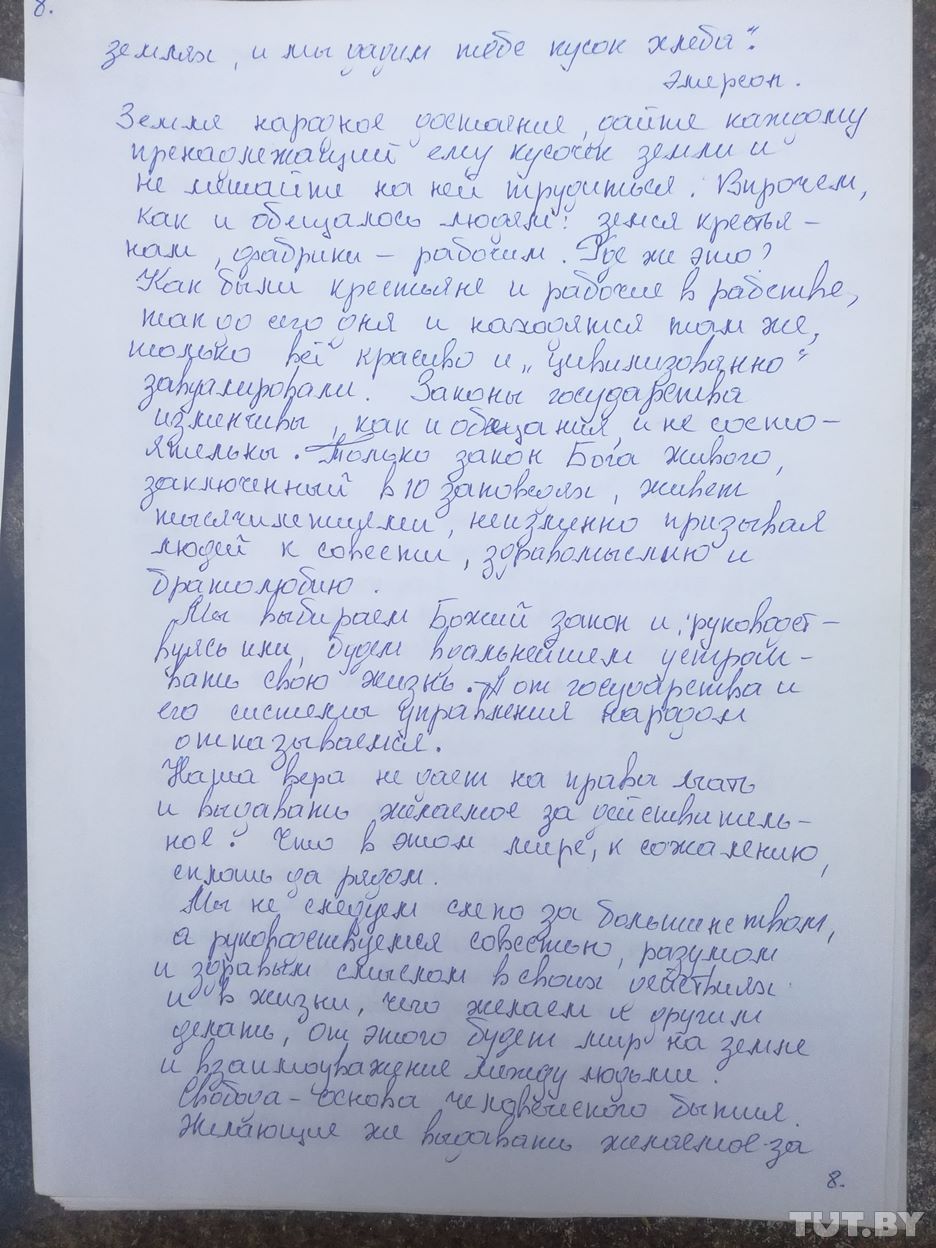 8.
землях, и мы дадим тебе кусок хлеба".
Эмерсон.
Земля народное достояние, дайте каждому
пренадлежащий ему кусочек земли и
не мешайте на ней трудиться. Впрочем,
как и обещалось людям: земля крестья-
нам, фабрики - рабочим. Где же это?
Как были крестьяне и рабочие в рабстве,
так до сего дня и находятся там же,
только всё красиво и "цивилизованно"
завуалировали. Законы государства
изменчивы, как и обещания, и не состо-
ятельны. Только закон Бога живого,
заключенный в 10 заповедях, живет
тысячилетиями, неизменно призывая
людей к совести, здравомыслию и
братолюбию.
Мы выбираем Божий закон и, руководст-
вуясь им, будем вдальнейшем устраи-
вать свою жизнь. А от государства и
его системы управления народом
отказываемся.
Наша вера не дает на права лгать
и выдавать желаемое за действитель-
ное. Что в этом мире, к сожалению,
сплошь да рядом.
Мы не следуем слепо за большинством,
а руководствуемся совестью, разумом
и здравым смыслом в своих действиях
и в жизни, чего желаем и другим
делать, от этого будет мир на земле
и взаимоуважение между людьми.
Свобода - основа человеческого бытия.
Желающие же выдавать желаемое за
8.
TUT.BY